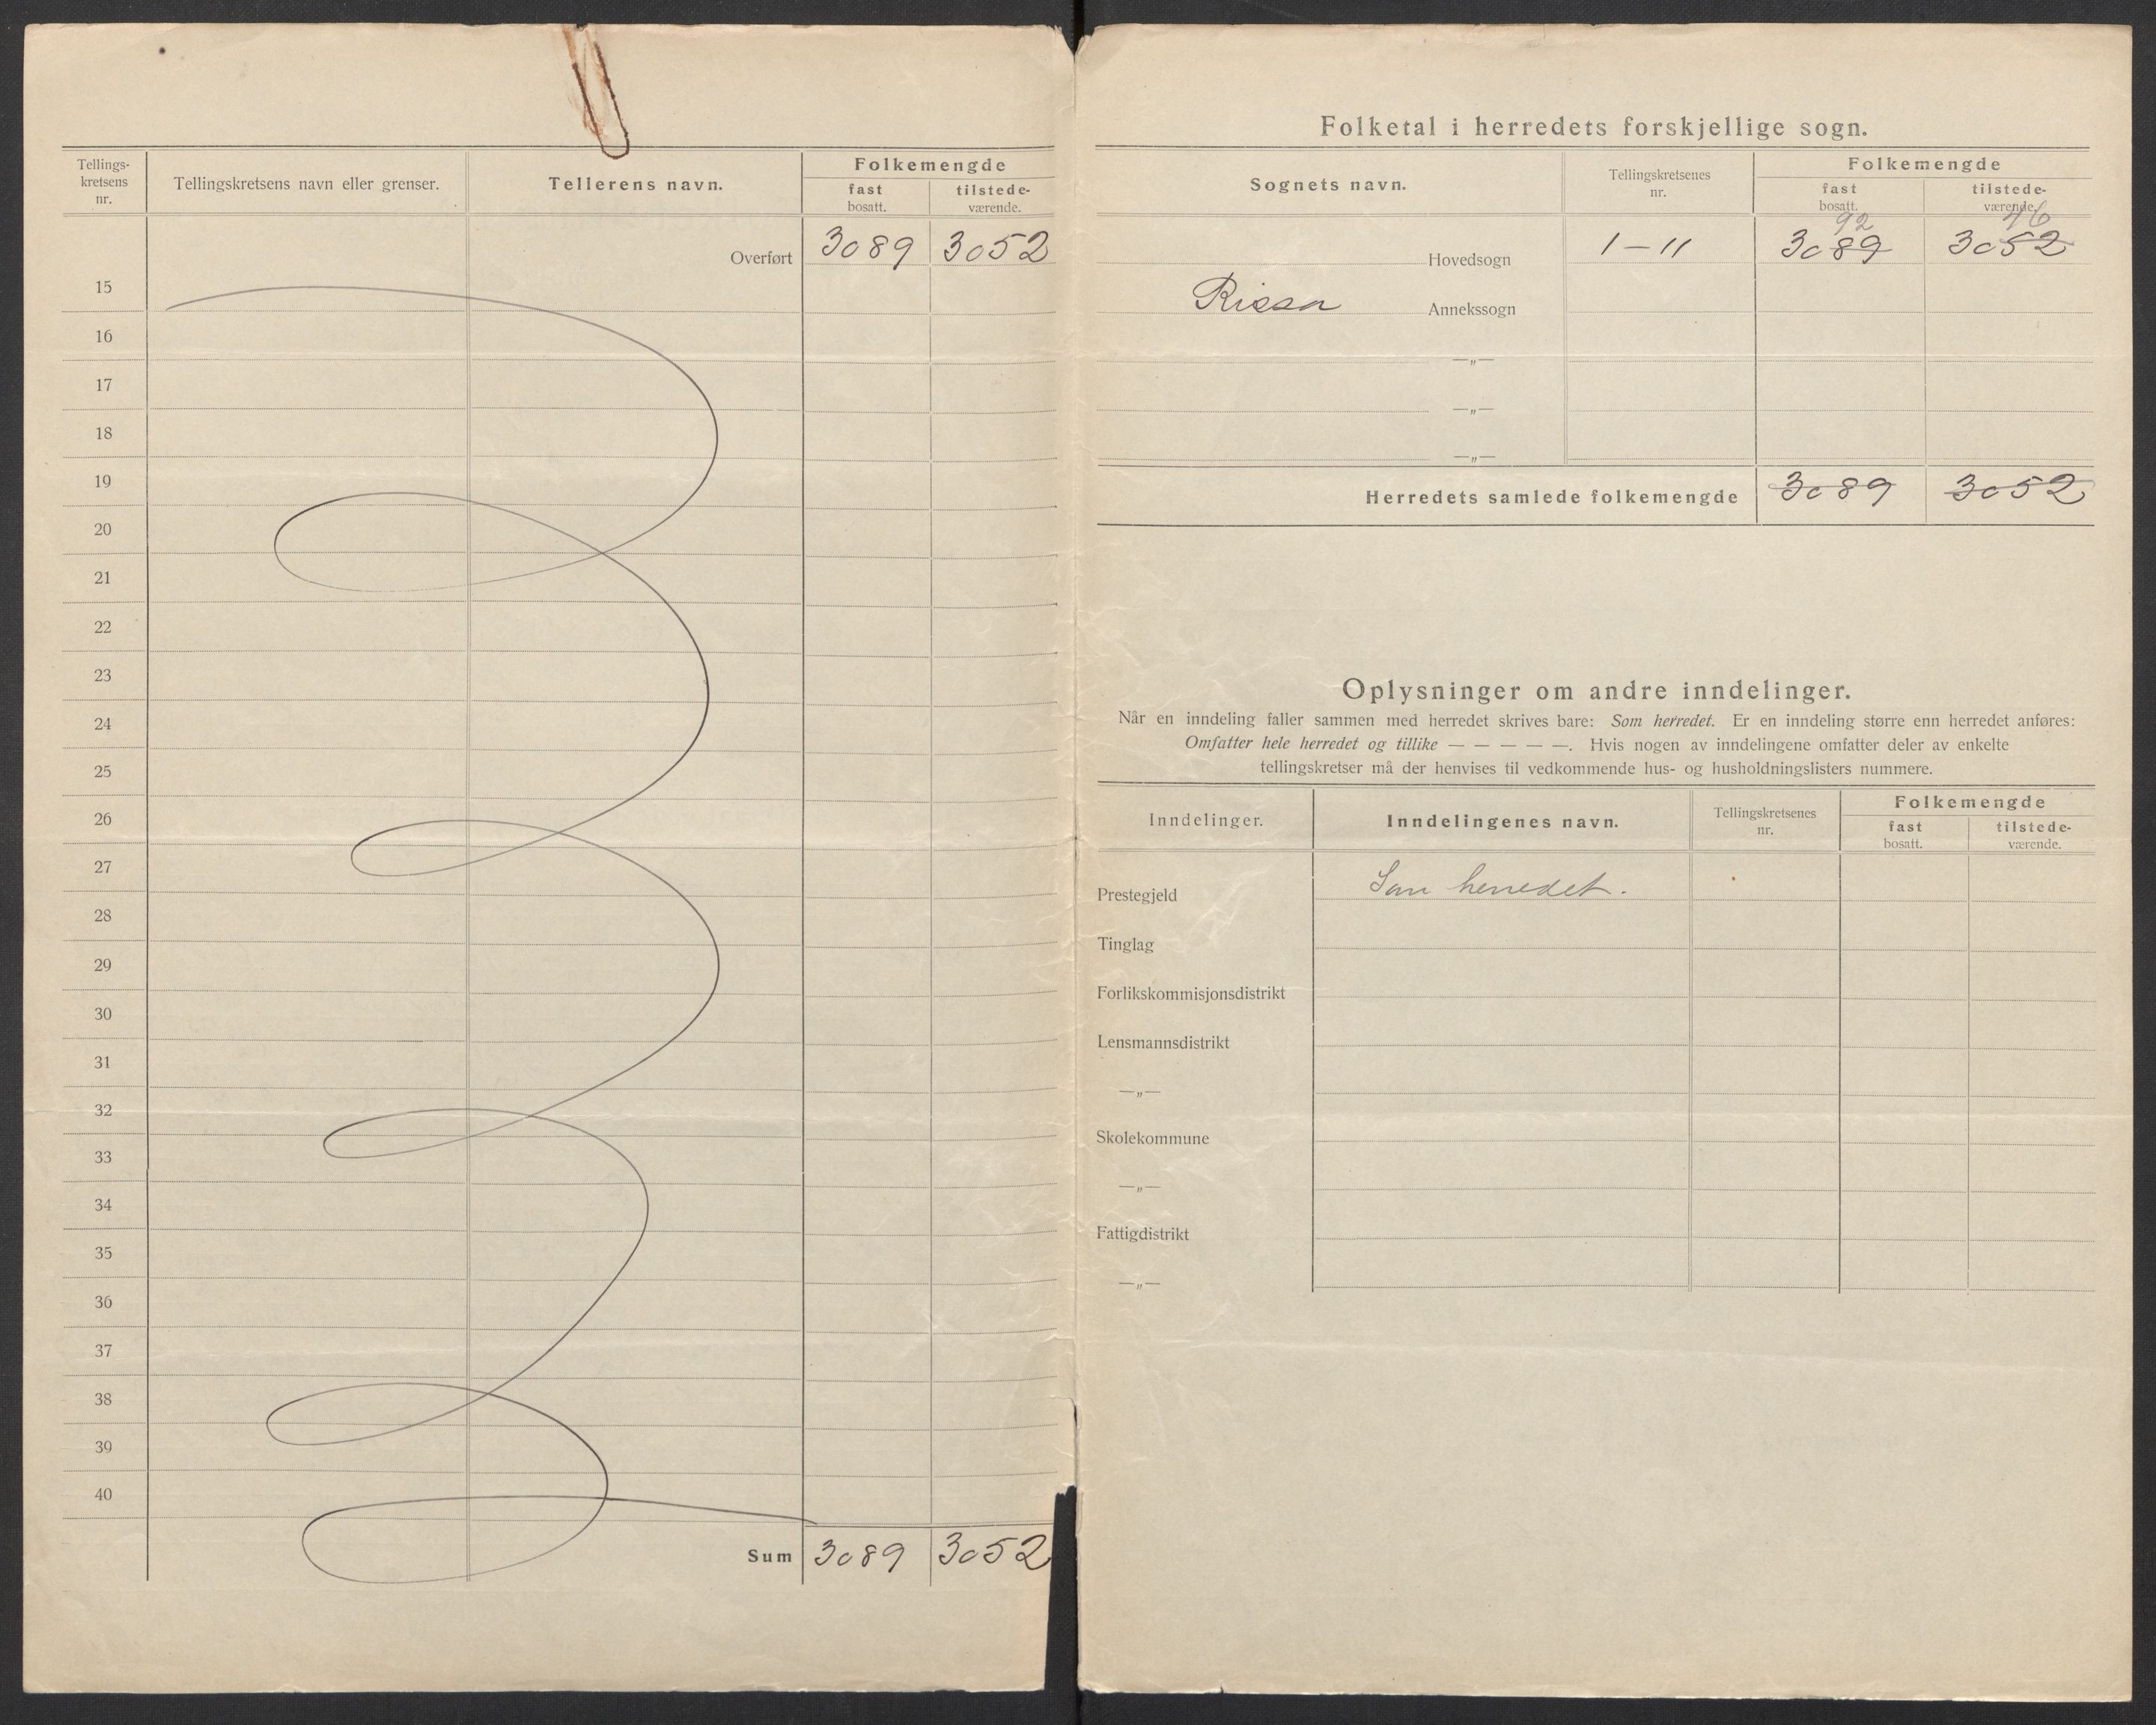 Tellings-
kretsens
nr.
Tellingskretsens navn eller grenser.
Tellerens navn.
Folkemengde
fast
bosatt.
tilstede-
værende.
Overført 3089 3052
15
16
17
18
19
20
21
22
23
24
25
26
27
28
29
30
31
32
33
34
35
36
37
38
39
40
Sum 3089 3052
Folketal i herredets forskjellige sogn.
Sognets navn.
Tellingskretsenes
nr.
Folkemengde
fast
bosatt.
tilstede-
værende.
92 46
Hovedsogn 1-11 3089 3052
Rissa Annekssogn
—„—
—„—
—„—
Herredets samlede folkemengde 3089 3052
Oplysninger om andre inndelinger.
Når en inndeling faller sammen med herredet skrives bare: Som herredet. Er en inndeling større enn herredet anføres:
Omfatter hele herredet og tillike — — — — —. Hvis nogen av inndelingene omfatter deler av enkelte
tellingskretser må der henvises til vedkommende hus- og husholdningslisters nummere.
Inndelinger.
Inndelingenes navn.
Tellingskretsenes
nr.
Folkemengde
fast
bosatt.
tilstede-
værende.
Prestegjeld Som herredet.
Tinglag
Forlikskommisjonsdistrikt
Lensmannsdistrikt
—„—
Skolekommune
—„—
Fattigdistrikt
—„—